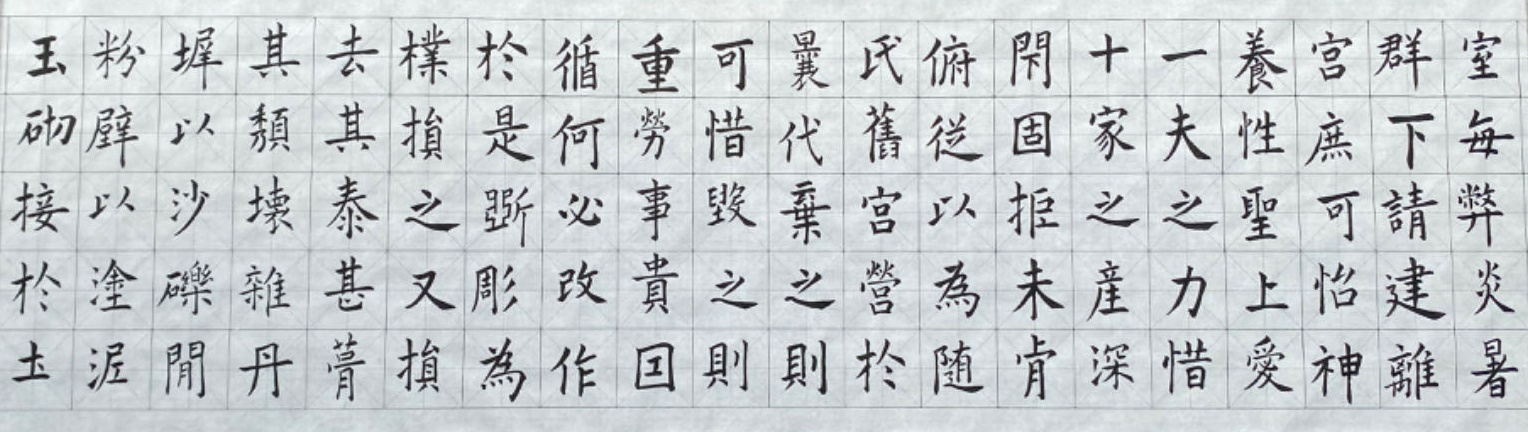 室每弊炎暑
群下請建離
宫庶可怡神
養性聖上愛
一夫之力惜
十家之産深
閇固拒未肯
俯従以為随
氏舊宫營於
曩代棄之則
可惜毀之則
重勞事貴囙
循何必改作
於是斵彫為
樸損之又損
去其泰甚葺
其頹壞雜丹
墀以沙礫閒
粉壁以塗泥
玉砌接於土